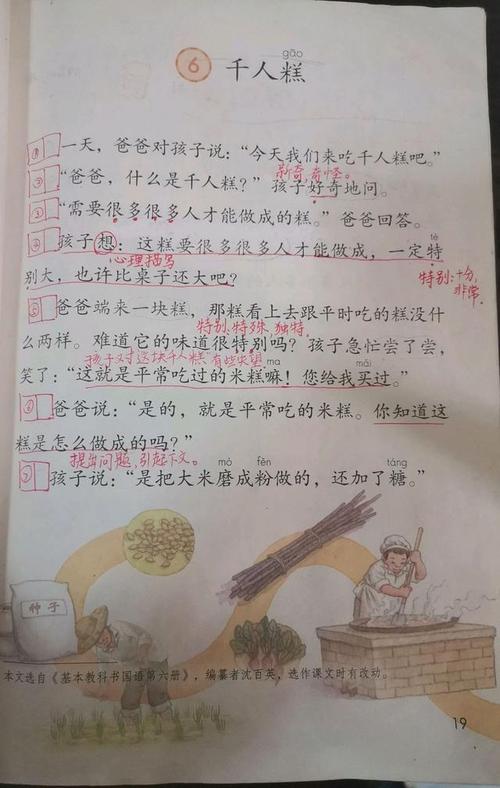 gāo
6 千人糕
① 一天，爸爸对孩子说：“今天我们来吃千人糕吧。”
新奇，奇怪。
② “爸爸，什么是千人糕？”孩子好奇地问。
③ “需要很多很多人才能做成的糕。”爸爸回答。
tè
④ 孩子想：这糕要很多很多人才能做成，一定特
心理描写
别大，也许比桌子还大吧？
特别：十分，
非常。
⑤ 爸爸端来一块糕，那糕看上去跟平时吃的糕没什
么两样。难道它的味道很特别吗？孩子急忙尝了尝，
特别，特殊，独特。
孩子对这块千人糕有些失望
ma mǎi
笑了：“这就是平常吃过的米糕嘛！您给我买过。”
⑥ 爸爸说：“是的，就是平常吃的米糕。你知道这
糕是怎么做成的吗？”
提出问题，引起下文。
mò fěn táng
⑦ 孩子说：“是把大米磨成粉做的，还加了糖。”
种子
本文选自《基本教科书国语第六册》，编纂者沈百英，选作课文时有改动。
19